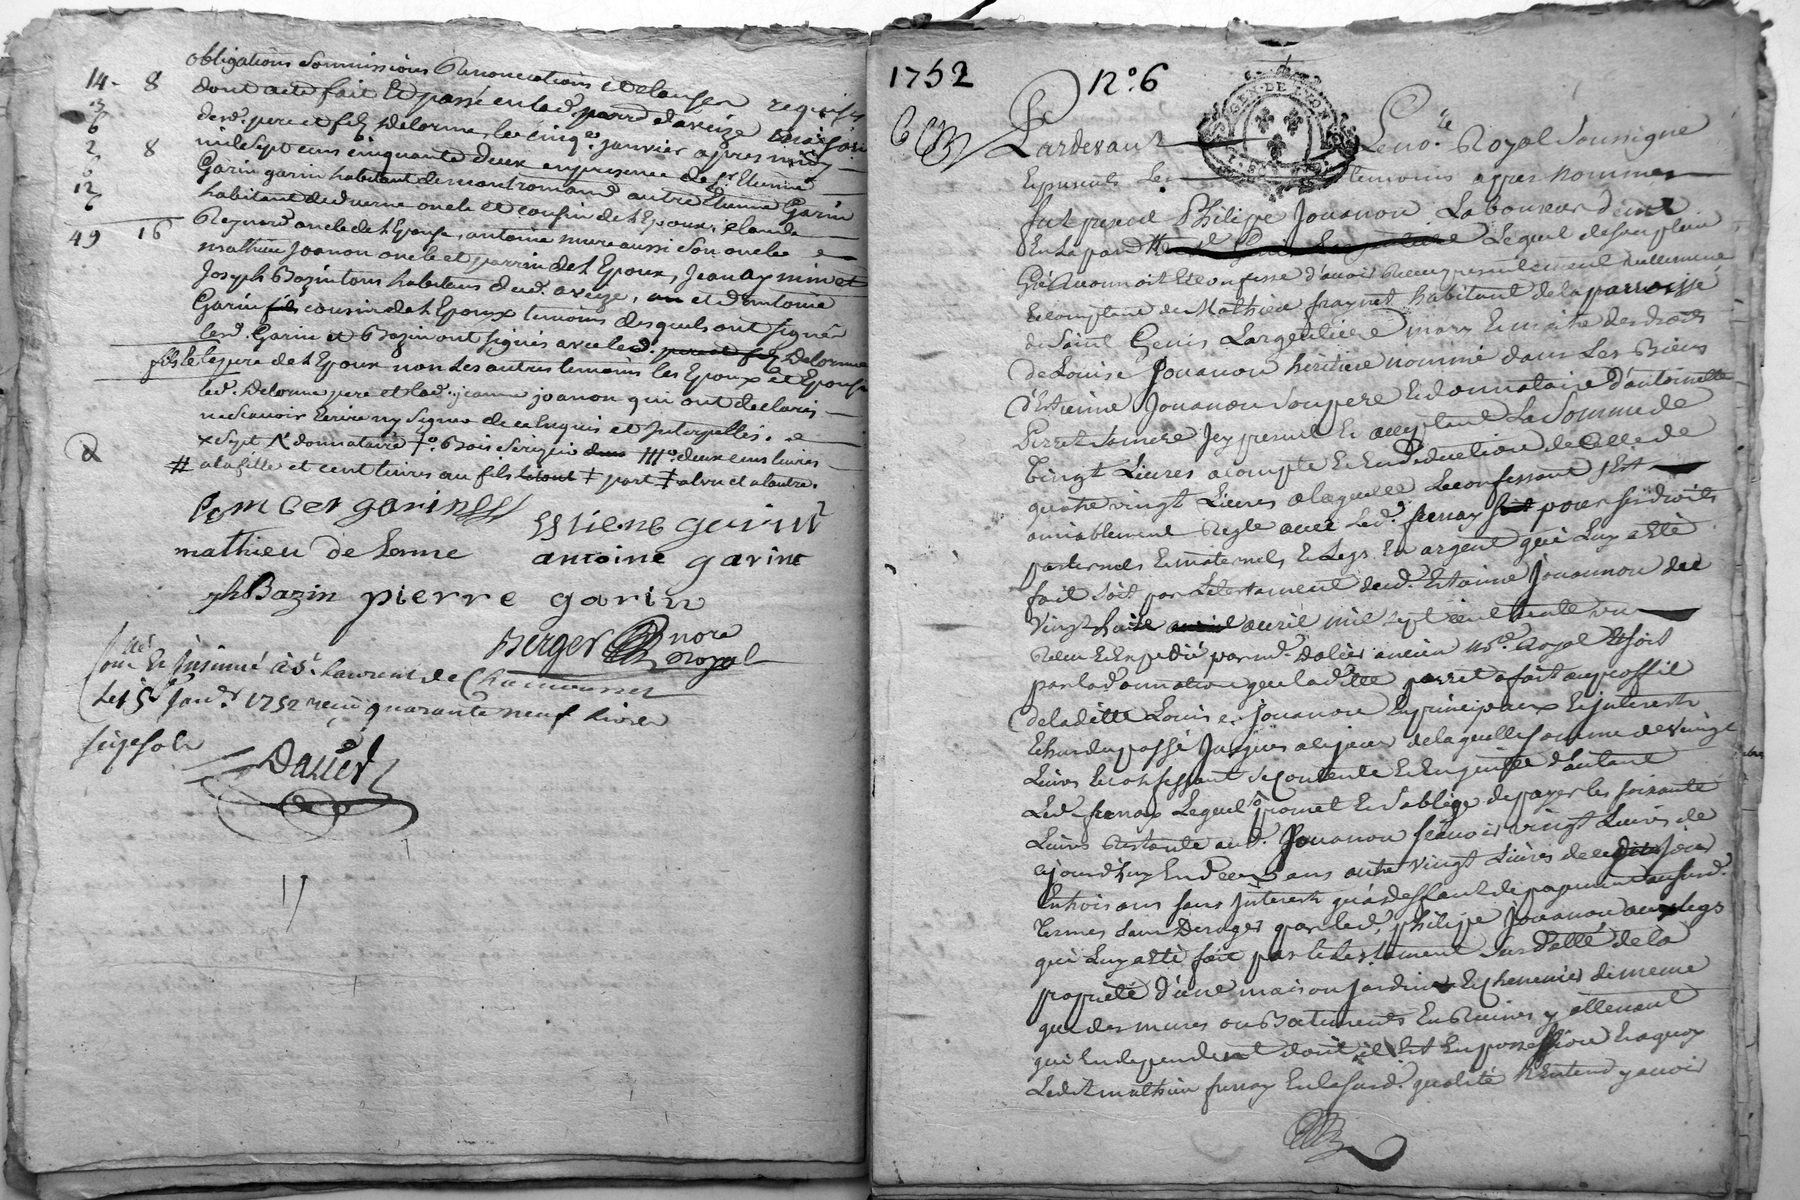 14 - 8
6
2 8
12
49 16
obligations soumissions Renonciations et clauses requises
dont acte fait Et passé en lad. parr. d'aveize maison
desd. pere et fils Delorme, le cinq. janvier apres midy
mil sept cens cinquante deux en presence de sr Etienne
Garin garin habitant de montromand autre Etienne Garin
habitant de duerne oncle et cousin de l'Epoux, claude
Reynard oncle de l'Epouse, antoine mure aussi son oncle
mathieu Joanon oncle et parrin de l'Epoux, Jean
Joseph Bazin tous habitans dud. aveize, et d'antoine
Garin fils cousin de l'Epoux temoins desquels ont signé
lesd. Garin et Bazin ont signés avec led. pere et fils Delorme
fils le pere de l'Epoux non les autres temoins les Epoux et Epouse
led. Delorme pere et lad. jeanne joanon qui ont declarés
ne sçavoir Ecrire ny signer de ce Enquis et Interpellés.
donnataire deux cens livres
# a la fille et cent livres au fils part a l'un et a l'autre.
garin Estiene garin
mathieu de lorme antoine garin
jh Bazin pierre garin
Berger nore
Royal
Conlé Et Insinué à St. Laurent de Chamousset
Le 15 Janr. 1752 reçu quarante neuf livres
seize sols
Dalier
1752 No. 6
GEN. DE LYON
Pardevant Le no.re Royal soussigné
Et presents les temoins apres nommés
fut present Philipe Jouanon Laboureur
Lequel de son plein
Gré Reconnoit Et confesse d'avoir Receu presentement reellement
Et comptant de Mathieu habitant de la parroisse
de Saint Genis Largentiere mary Et maitre des droits
de Louise Jouanon héritiere nommé dans Les Biens
d'Estienne Jouanon son pere Et donnataire d'antoinette
Perret sa mere Icy present Et acceptant La somme de
Vingt Livres a compte Et En deduction de Celle de
quatre vingt Livres a laquelle Le confessant s'Est
amiablement Regle avec Led. pour ses droits
paternels Et maternels, Et Legs En argent qui Luy a Eté
fait soit par le testament dud. Estienne Jouannon du
Vingt huit avril mil sept cent trente un
Receu Et Expedié par me. Dalier ancien no.re Royal Et soit
par la donnation que ladite perret a fait au proffit
de ladite Louise Jouanon En principaux Et interests
Echus du passé Jusques a ce jour de laquelle somme de vingt
Livres Le confessant se contente Et En quitte d'autant
Led. Lequel promet Et s'oblige de payer les soixante
Livres Restante aud. Jouanon sçavoir vingt Livres de
ce jourd'huy En deux ans autre vingt Livres de ce jour
En trois ans sans Interests qu'a deffaut de payement ausd.
termes sans Deroger par led. Philipe Jouanon aux legs
qui Luy a Eté fait par le testament sus datté de la
proprieté d'une maison jardin Et cheneviere de meme
que des mures ou Batiments En Ruines y attenant
qui En dependent dont il Est En possession Et a quoy
Ledit mathieu En la susd. qualité N'Entend y avoir